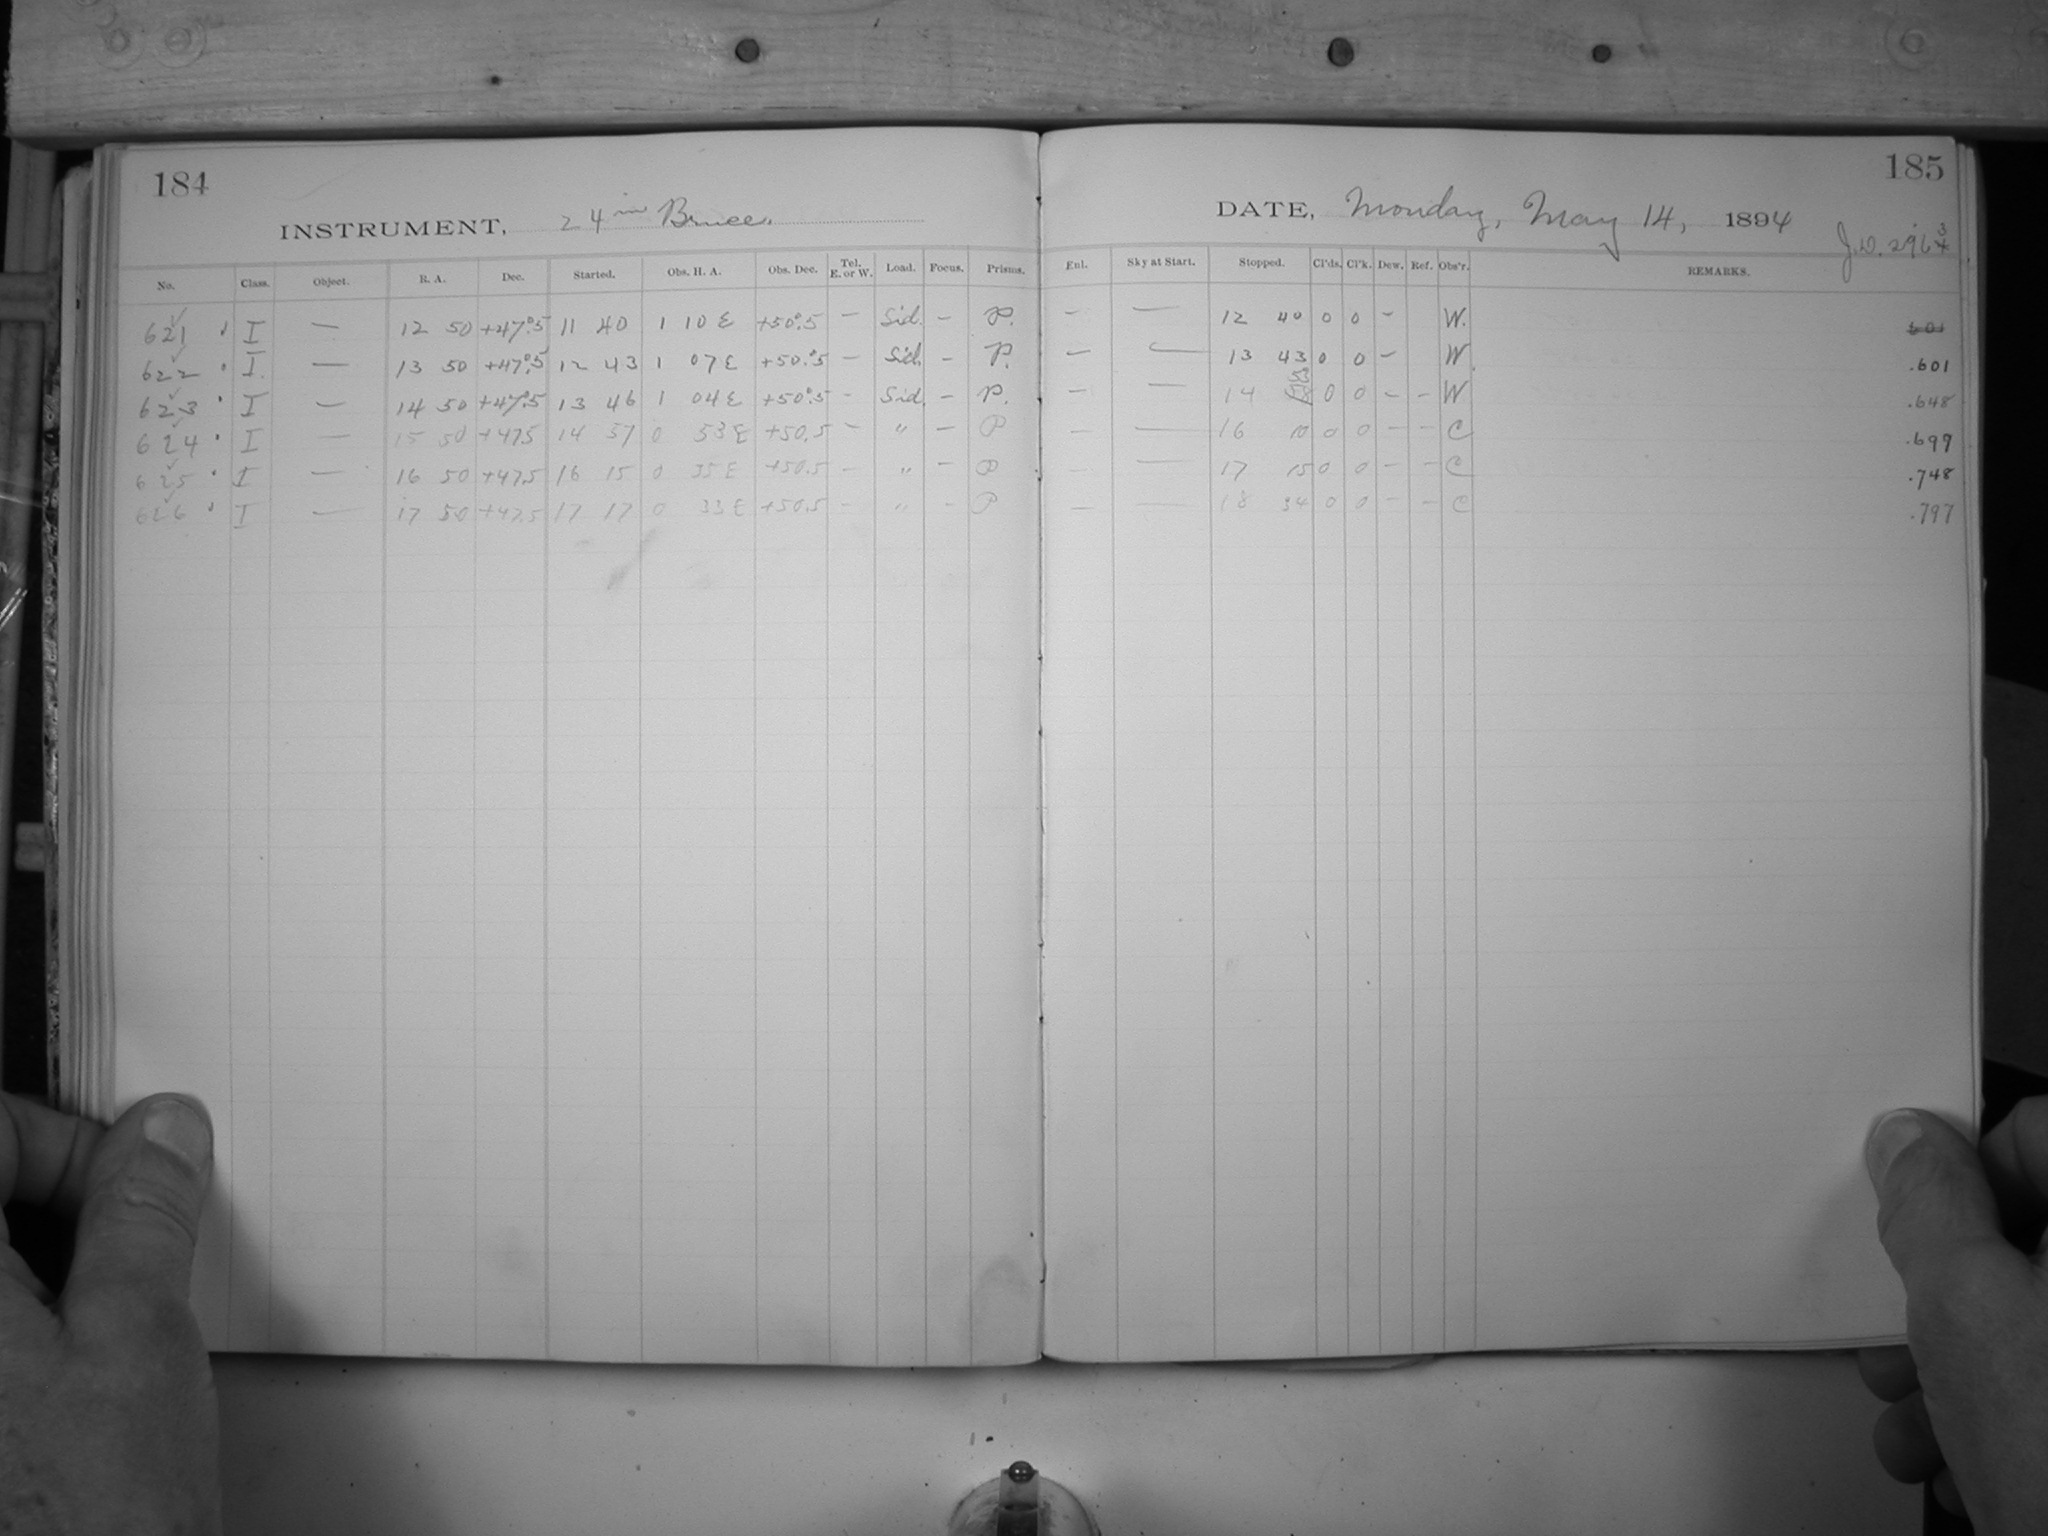 184
INSTRUMENT, 24 in Bruce.
No. Class. Object. R. A. Dec. Started. Obs. H. A. Obs. Dec. Tel. E. or W. Load. Focus. Prisms.
621 I — 12 50 +47°.5 11 40 1 10 E +50°.5 — Sid. — P.
622 I. — 13 50 +47°.5 12 43 1 07 E +50°.5 — Sid. — P.
623 I — 14 50 +47°.5 13 46 1 04 E +50°.5 — Sid. — P.
624 I — 15 50 +47.5 14 57 0 53 E +50.5 — " — P
625 I — 16 50 +47.5 16 15 0 35 E +50.5 — " — P
626 I — 17 50 +47.5 17 17 0 33 E +50.5 — " — P
185
DATE, Monday, May 14, 1894
J.D. 296
Enl. Sky at Start. Stopped. Cl'ds. Cl'k. Dew. Ref. Obs'r. REMARKS.
— — 12 40 0 0 — W. 601
— — 13 43 0 0 — W .601
— — 14 53 0 0 — — W .648
— — 16 10 0 0 — — C .699
— — 17 15 0 0 — — C .748
— — 18 34 0 0 — — C .797